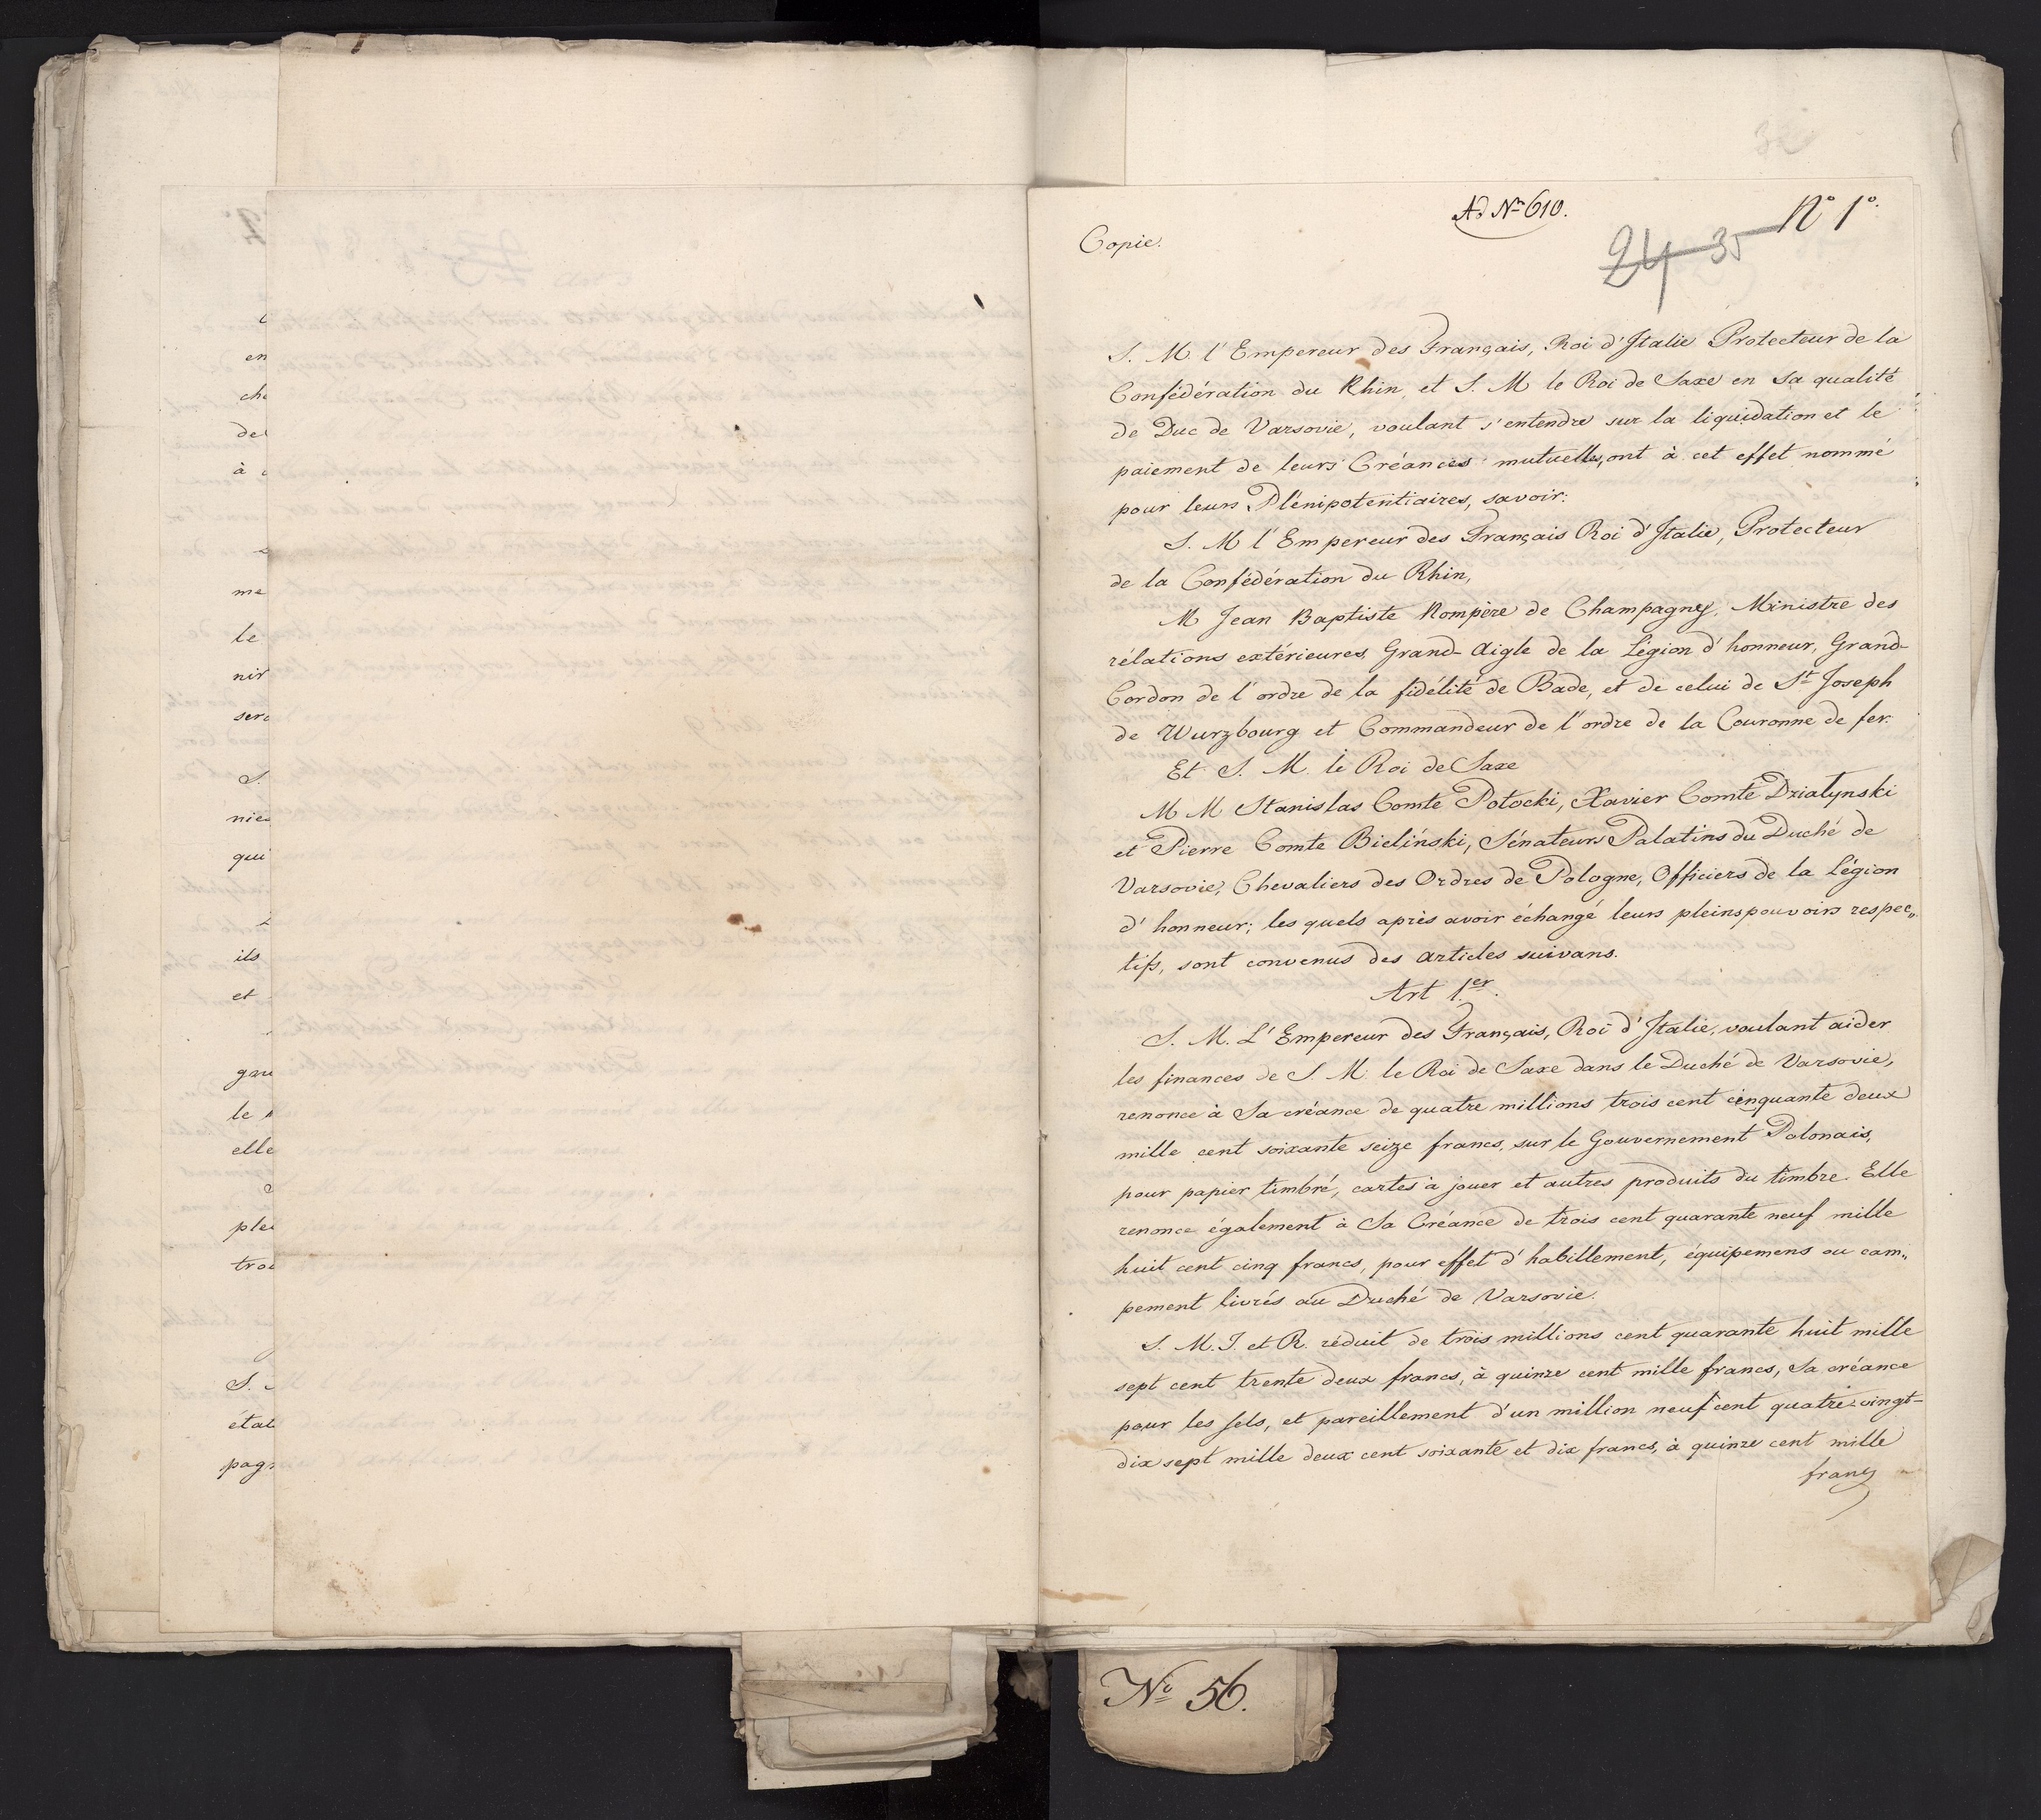 en
che
del
à
me
le
nir
sera
S.
nies
qui
ils
et
gar
le
elle
plei
troi
S.
état
pag
Ad Nr 610.
Nº 1º.
Copie.
24 35
S. M l'Empereur des Français, Roi d'Italie Protecteur de la
Confédération du Rhin, et S. M le Roi de Saxe en sa qualité
de Duc de Varsovie, voulant s'entendre sur la liquidation et le
paiement de leurs Créances mutuelles, ont à cet effet nommé
pour leurs Plénipotentiaires, savoir:
S. M l'Empereur des Français Roi d'Italie, Protecteur
de la Confédération du Rhin,
M Jean Baptiste Nompère de Champagny, Ministre des
rélations extérieures, Grand-Aigle de la Légion d'honneur, Grand-
Cordon de l'ordre de la fidélité de Bade, et de celui de St Joseph
de Wurzbourg et Commandeur de l'ordre de la Couronne de fer.
Et S. M. le Roi de Saxe
M M Stanislas Comte Potocki, Xavier Comte Dzialynski
et Pierre Comte Bieliński, Sénateurs Palatins du Duché de
Varsovie, Chevaliers des Ordres de Pologne, Officiers de la Légion
d'honneur; les quels après avoir échangé leurs pleinspouvoirs respec„
tifs, sont convenus des articles suivans.
Art 1.er
S. M. L'Empereur des Français, Roi d'Italie, voulant aider
les finances de S. M. le Roi de Saxe dans le Duché de Varsovie,
renonce à Sa créance de quatre millions trois cent cinquante deux
mille cent soixante seize francs, sur le Gouvernement Polonais,
pour papier timbré, cartes à jouer et autres produits du timbre. Elle
renonce également à Sa Créance de trois cent quarante neuf mille
huit cent cinq francs, pour effet d'habillement, équipemens ou cam„
pement livrés au Duché de Varsovie.
S. M. I. et R. réduit de trois millions cent quarante huit mille
sept cent trente deux francs, à quinze cent mille francs, Sa créance
pour les sels, et pareillement d'un million neuf cent quatre-vingt-
dix sept mille deux cent soixante et dix francs, à quinze cent mille
francs
No 56.